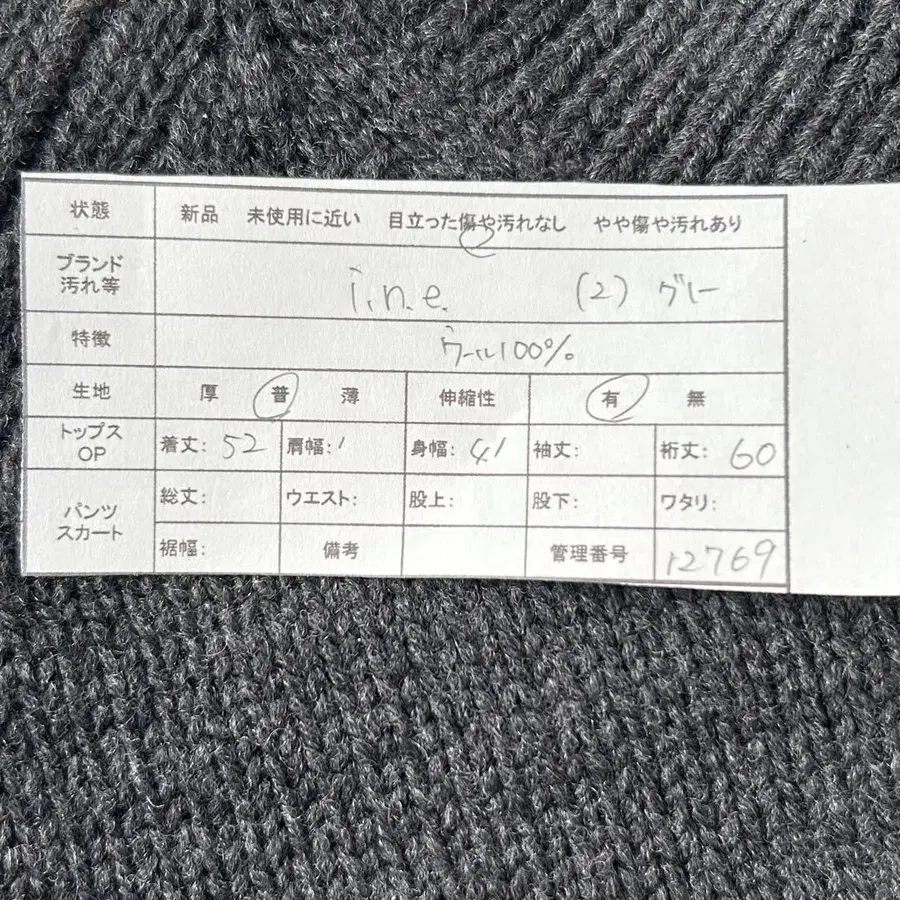 状態 新品 未使用に近い 目立った傷や汚れなし やや傷や汚れあり
ブランド 汚れ等 i.n.e. (2) グレー
特徴 ウール100%
生地 厚 普 薄 伸縮性 有 無
トップス OP 着丈: 52 肩幅: 身幅: 41 袖丈: 裄丈: 60
パンツ スカート 総丈: ウエスト: 股上: 股下: ワタリ:
裾幅: 備考 管理番号 12769